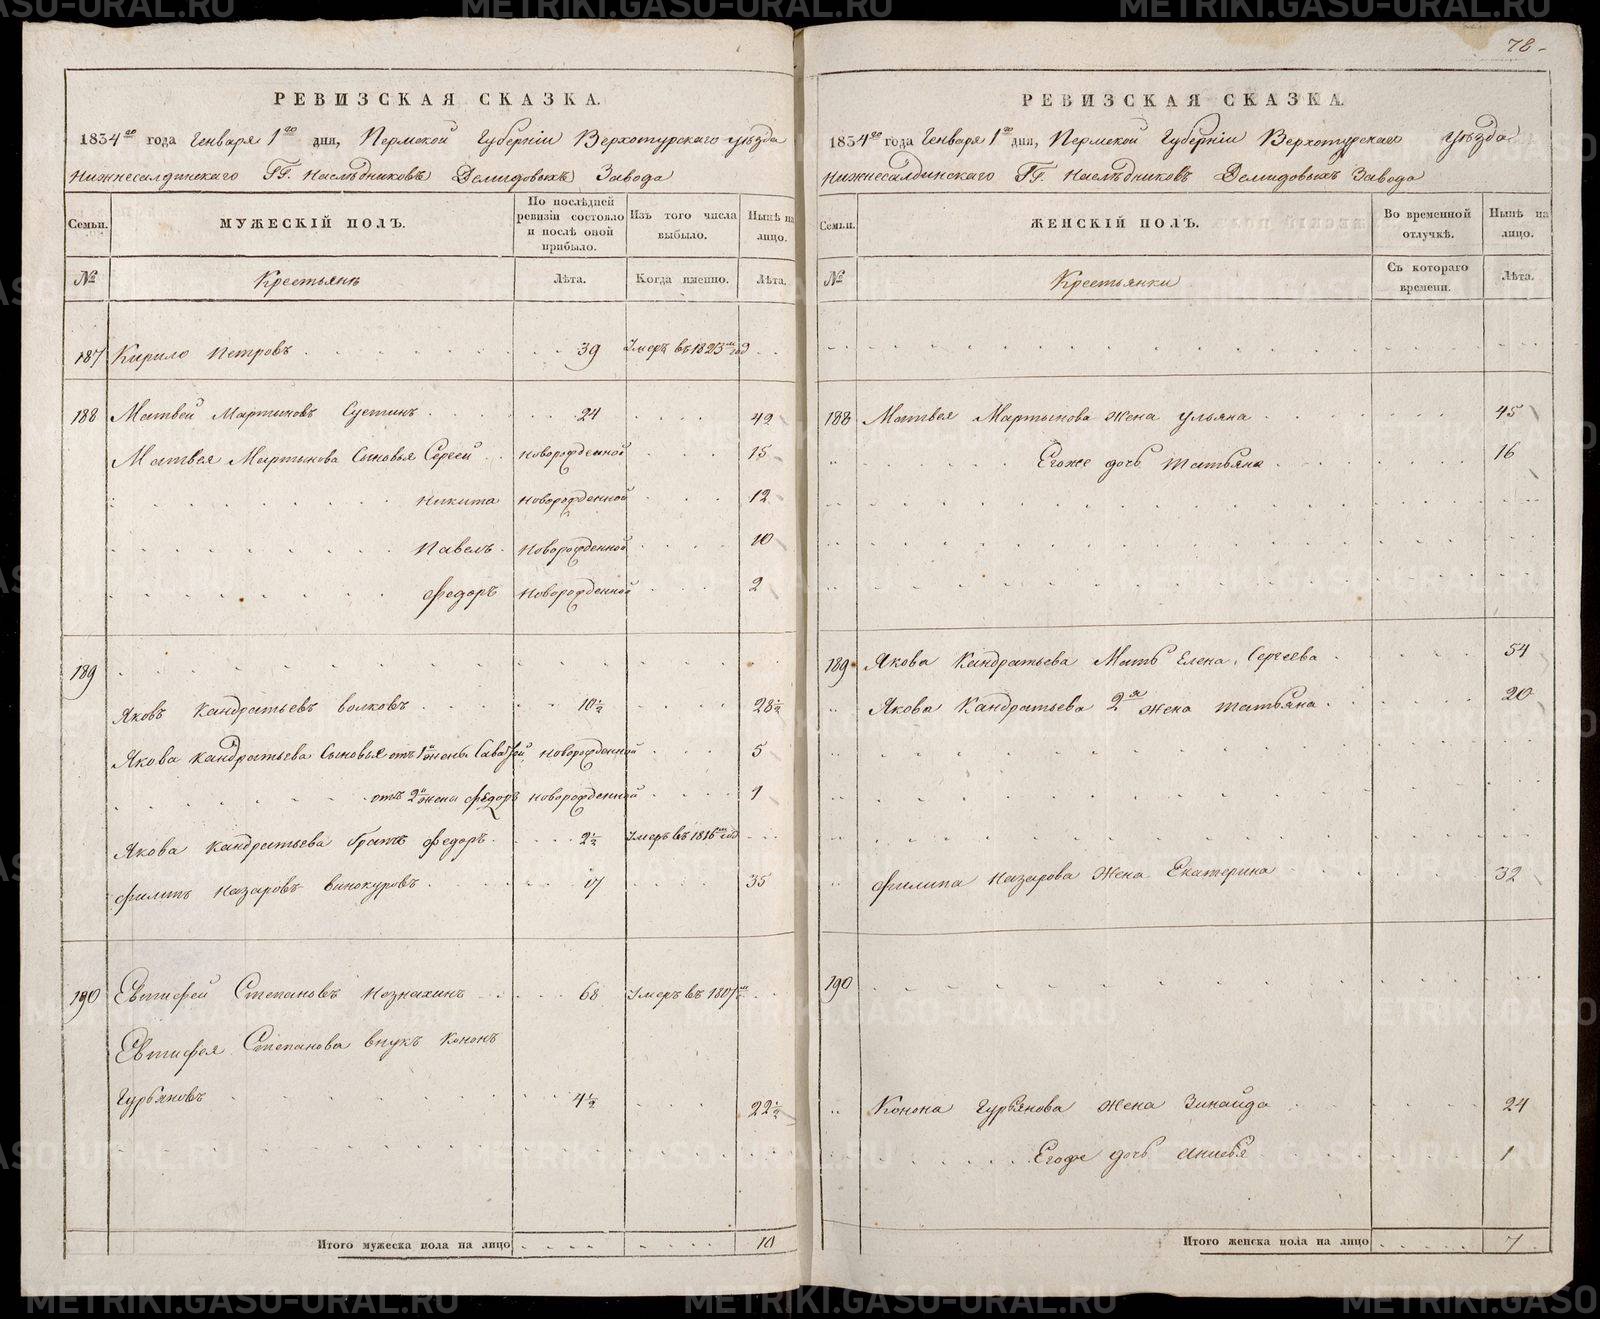 78.
РЕВИЗСКАЯ СКАЗКА.
1834го года Генваря 1го дня, Пермской Губерніи Верхотурскаго уѣзда
Нижнесалдинскаго ГГ. Наслѣдниковъ Демидовыхъ Завода
Семьи. МУЖЕСКІЙ ПОЛЪ. По послѣдней ревизіи состояло и послѣ оной прибыло. Изъ того числа выбыло. Нынѣ на лицо.
№ Крестьянъ Лѣта. Когда именно. Лѣта.
187 Кирило Петровъ 39 Умеръ въ 1823м год
188 Матвей Мартиновъ Суетинъ 24 42
Матвея Мартинова Сыновья Сергей новорожденной 15
Никита новорожденной 12
Павелъ Новорожденной 10
Федоръ Новорожденной 2
189
Яковъ Кандратьевъ волковъ 10½ 28½
Якова Кандратьева Сыновья отъ 1й жены новорожденной 5
отъ 2й жена Федоръ новорожденной 1
Якова Кандратьева братъ Федоръ 2½ Умеръ въ 1816м год
Филипъ Назаровъ Винокуровъ 17 35
190 Евтифей Степановъ Незнахинъ 68 Умеръ въ 1807м
Евтифея Степанова внукъ Кононъ
Гурьяновъ 4½ 22½
Итого мужеска пола на лицо 10
РЕВИЗСКАЯ СКАЗКА.
1834го года Генваря 1го дня, Пермской Губерніи Верхотурскаго уѣзда
Нижнесалдинскаго ГГ. Наслѣдниковъ Демидовыхъ Завода
Семьи. ЖЕНСКІЙ ПОЛЪ. Во временной отлучкѣ. Нынѣ на лицо.
№ Крестьянки Съ котораго времени. Лѣта.
188 Матвея Мартынова жена Ульяна 45
Егоже дочь Татьяна 16
189 Якова Кандратьева Мать Елена Сергеева 54
Якова Кандратьева 2я жена татьяна 20
Филипа Назарова жена Екатерина 32
190
Конона Гурьянова жена Зинаида 24
Егоже дочь 1
Итого женска пола на лицо 7
METRIKI.GASO-URAL.RU